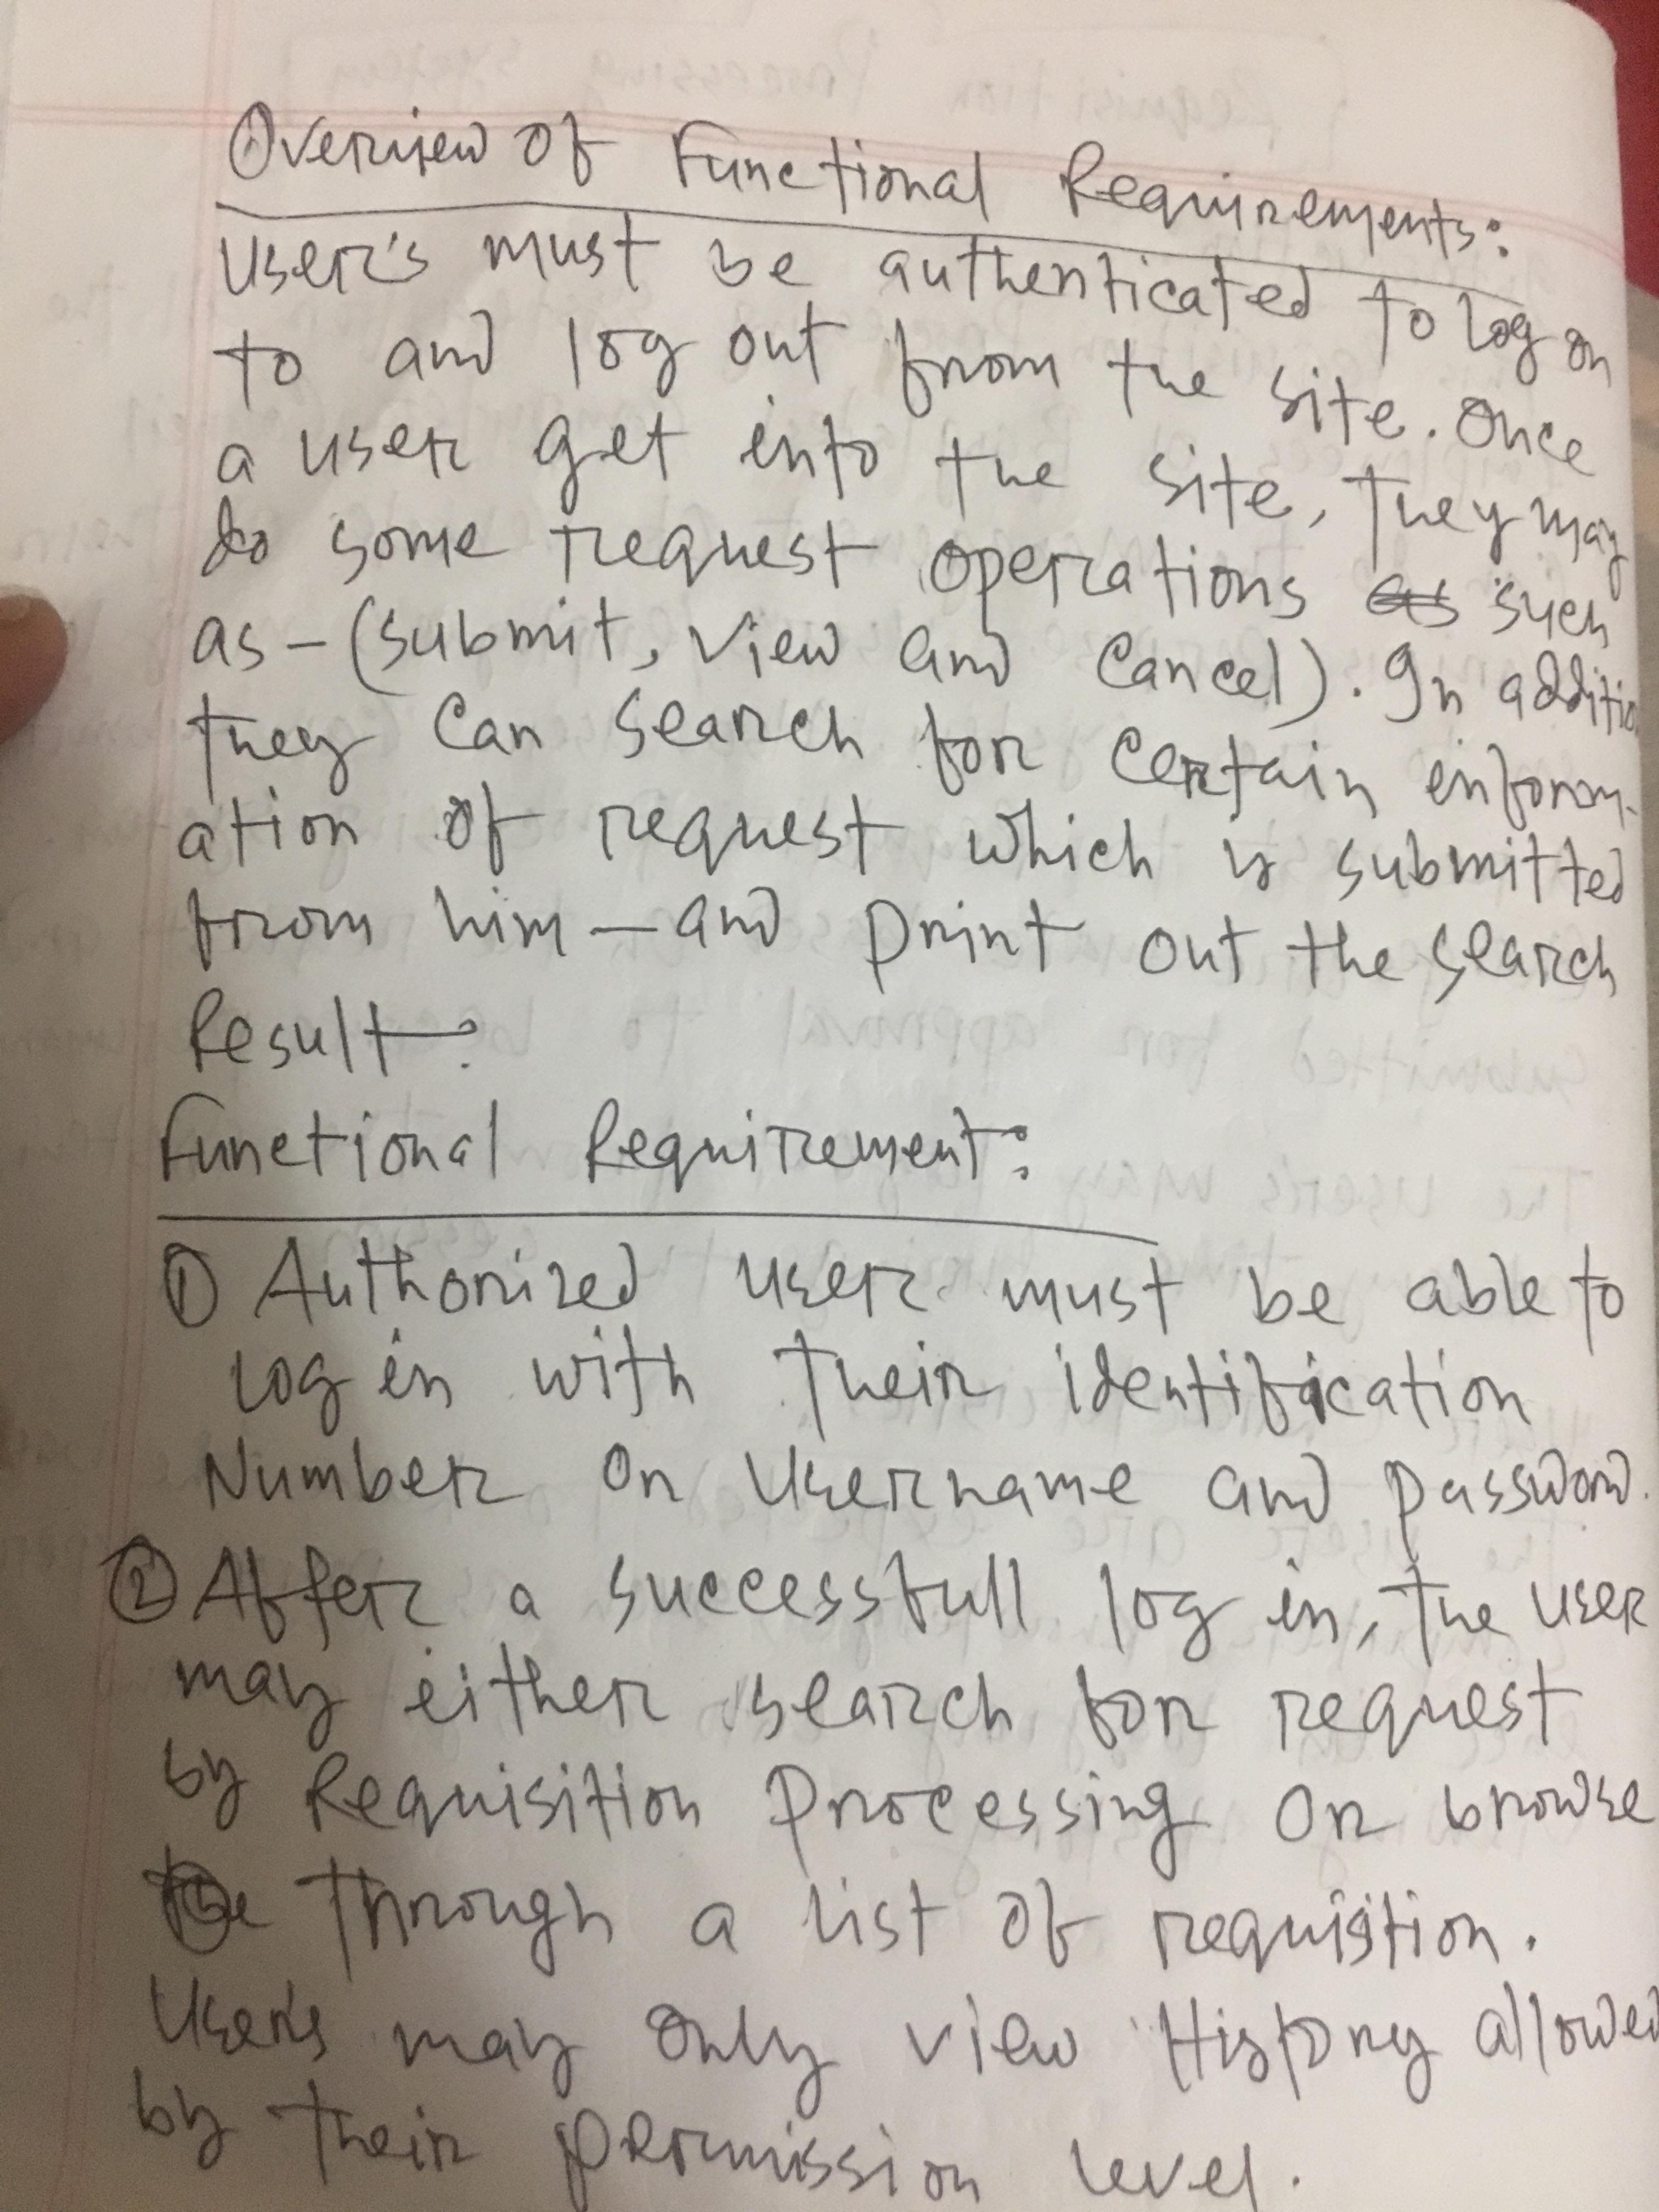 Overview of Functional Requirements:
User's must be authenticated to log on
to and log out from the site. Once
a user get into the site, they may
do some request operations as such
as - (submit, view and cancel). In additio
they can search for certain inform-
ation of request which is submitted
from him - and print out the search
Result.
Functional Requirement:
① Authorized user must be able to
log in with their identification
Number or Username and password.
② After a successfull log in, the user
may either search for request
by Requisition Processing or browse
through a list of requisition.
User's may only view History allowed
by their permission level.